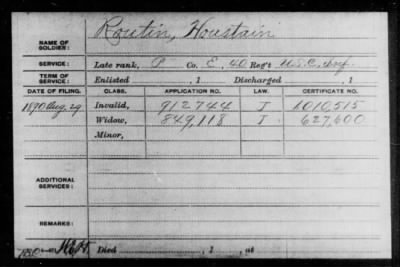 NAME OF SOLDIER: Routin, Houstain
SERVICE: Late rank, P Co. E, 40 Reg't U.S.C. Inf.
TERM OF SERVICE: Enlisted , 1 Discharged , 1
DATE OF FILING. CLASS. APPLICATION NO. LAW. CERTIFICATE NO.
1890 Aug. 29 Invalid, 912744 J 1010,515
Widow, 849,118 J 627,600
Minor,
ADDITIONAL SERVICES:
REMARKS:
Died , 1 , at